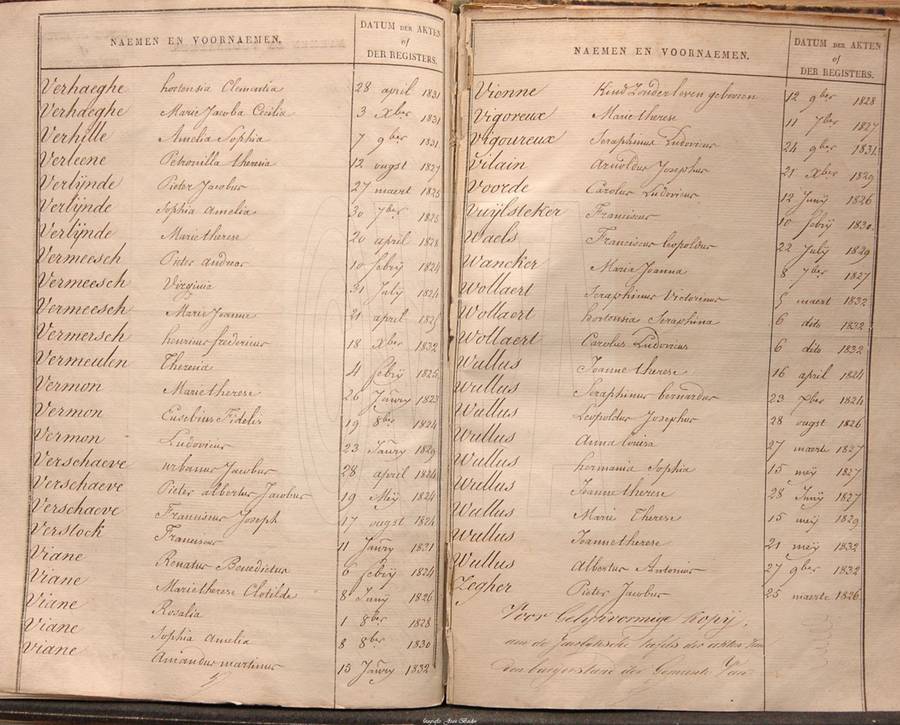 NAEMEN EN VOORNAEMEN.
DATUM DER AKTEN
of
DER REGISTERS.
Verhaeghe hortensia Clemantia 28 april 1831
Verhaeghe Marie Jacoba Cecilia 3 Xber 1831
Verhille Amelia Sophia 7 9ber 1831
Verleene Petronilla theresia 12 ougst 1827
Verlynde Pieter Jacobus 27 maert 1825
Verlynde Sophia Amelia 30 7ber 1825
Verlynde Marie therese 20 april 1828
Vermeesch Pieter Andreas 10 febry 1824
Vermeesch Virginia 31 July 1824
Vermeesch Marie Jeanne 21 april
Vermersch henricus fredericus 18 Xber 1832
Vermeulen Theresia 4 febry 1825
Vermon Marie therese 26 Janry 1823
Vermon Eusebius Fidelis 19 8ber 1824
Vermon Ludovicus 23 Janry 1829
Verschaeve urbanus Jacobus 28 april 1824
Verschaeve Pieter albertus Jacobus 19 Mey 1824
Verschaeve Franciscus Joseph 17 ougst 1824
Verstock Franciscus 11 Janry 1831
Viane Renatus Benedictus 6 febry 1824
Viane Marie therese Clotilde 8 Juny 1826
Viane Rosalia 1 8ber 1828
Viane Sophia Amelia 8 8ber 1830
Viane Amandus martinus 15 Janry 1832
NAEMEN EN VOORNAEMEN.
DATUM DER AKTEN
of
DER REGISTERS.
Vienne Kind Zonder leven geboren 12 9ber 1828
Vigoreux Marie therese 11 7ber 1827
Vigoureux Seraphinus Ludovicus 24 9ber 1831
Vilain Arnoldus Josephus 21 Xber 1829
Voorde Carolus Ludovicus 12 Juny 1826
Vuijlsteker Franciscus 10 febry 1830
Waels Franciscus leopoldus 22 July 1829
Wancker Maria Joanna 8 7ber 1827
Wollaert Seraphinus Victorinus 5 maert 1832
Wollaert hortensia Seraphina 6 dito 1832
Wollaert Carolus Ludovicus 6 dito 1832
Wullus Jeanne therese 16 april 1824
Wullus Seraphinus bernardus 23 7ber 1824
Wullus Leopoldus Josephus 28 ougst 1826
Wullus Anna louisa 27 maerte 1827
Wullus hermania Sophia 15 mey 1827
Wullus Jeanne therese 28 Juny 1827
Wullus Marie Therese 15 mey 1829
Wullus Jeanne therese 21 mey 1832
Wullus Albertus Antonius 27 9ber 1832
Zegher Pieter Jacobus 25 maerte 1826
Voor Gelijkvormige Kopij,
aan de tafels der akten Van
den burgerstand der Gemeente Van